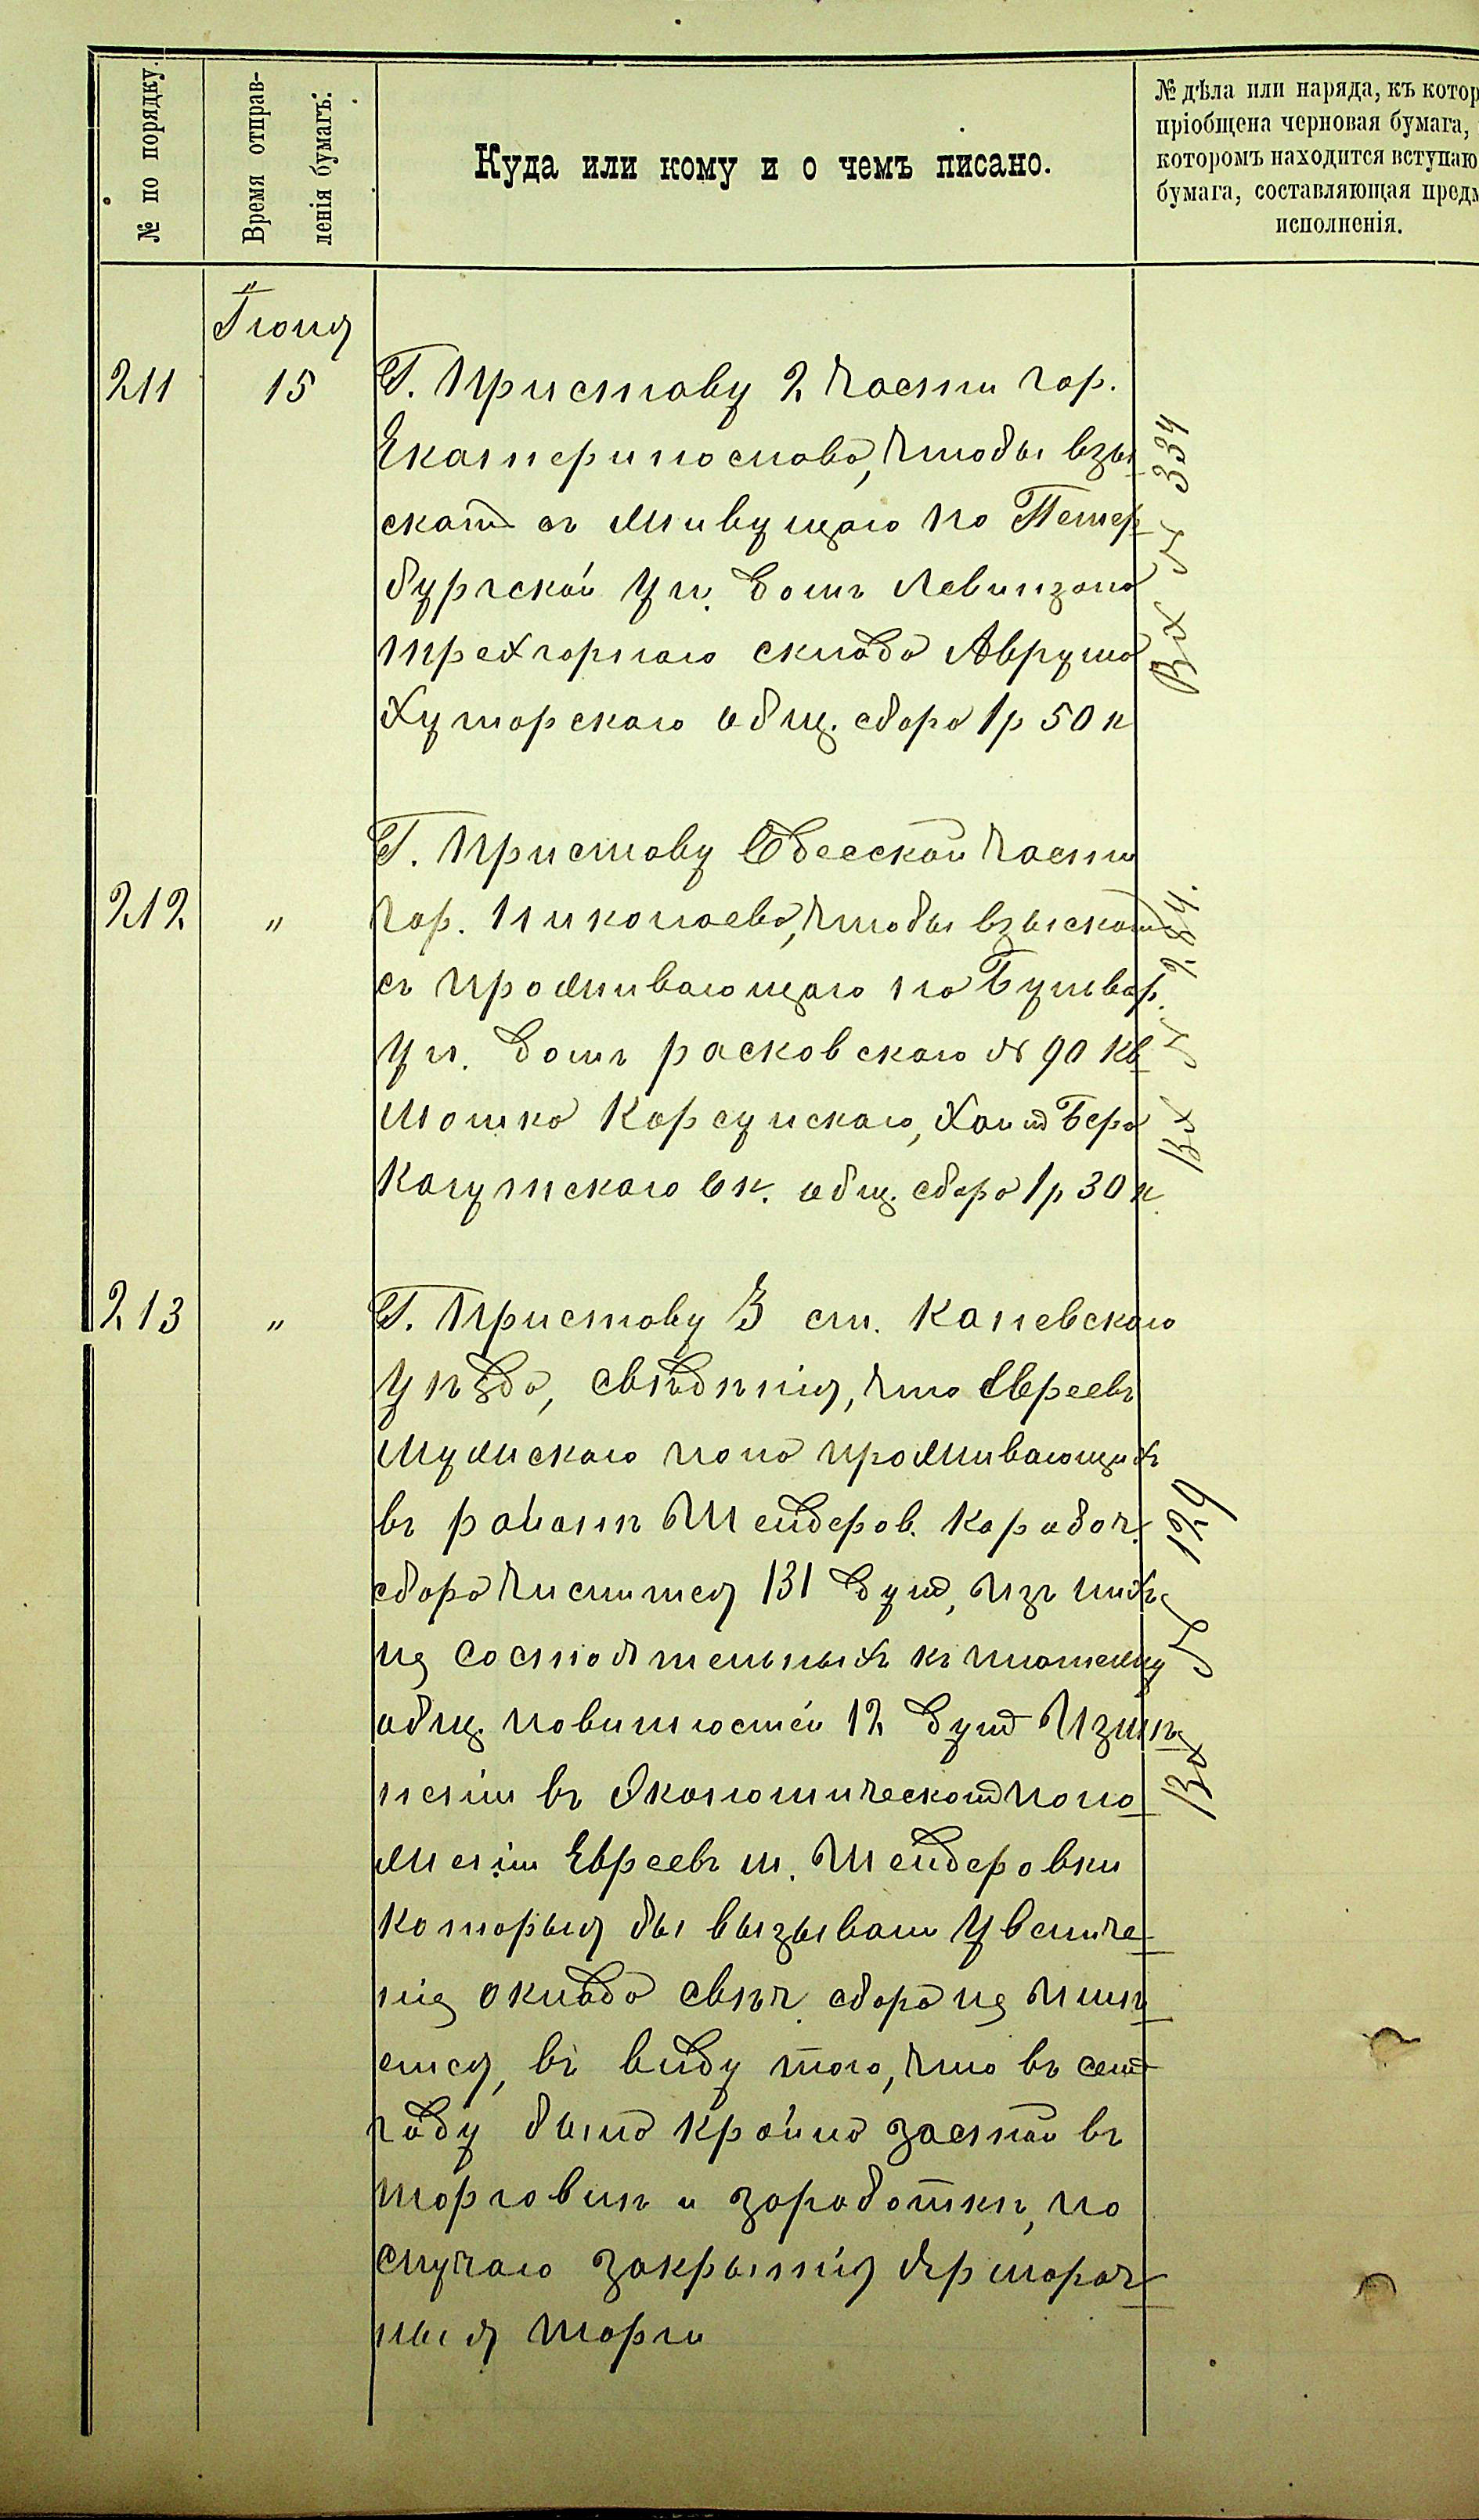 № по порядку.
Время отправ-
ленія бумагъ.
Куда или кому и о чемъ писано.
№ дѣла или наряда, къ котор
пріобщена черновая бумага,
которомъ находится вступаю
бумага, составляющая предм
исполненія.
Іюня
211 15 Г. Приставу 2 части гор.
Екатеринослава, чтобы взы
скать съ живущаго по Петер
бургской ул. домъ Левинзона
трехгорнаго склада Аврума
Хуторскаго общ. сбора 1 р 50 к
Вх № 334
Г. Приставу Одесской части
212 " гор. Николаева, чтобы взыскать
съ проживающаго по Бульвар.
ул. домъ расковского № 90 кв
Мошка Корсунскаго, Хаим Бера
Кагутскаго ок. общ. сбора 1 р 30 к
Вх № 284.
213 " Г. Приставу 3 ст. Каневскаго
уѣзда, свѣдѣнія, что Евреевъ
Мужскаго пола проживающихъ
въ раіонѣ Шендеров. Коробоч.
сбора числится 131 душ, изъ нихъ
не состоятельныхъ къ платежу
общ. повинностей 12 душ Измѣ
неніи въ Экономическом поло
женіи Евреевъ м. Шендеровки
которыя бы вызывали увеличе
ніе оклада свѣч. сбора не имѣ
ется, въ виду того, что въ сем
году была крайна застой въ
торговлѣ и заработкѣ, по
случаю закрытія Ярмароч
ныя торги
Вх № 129